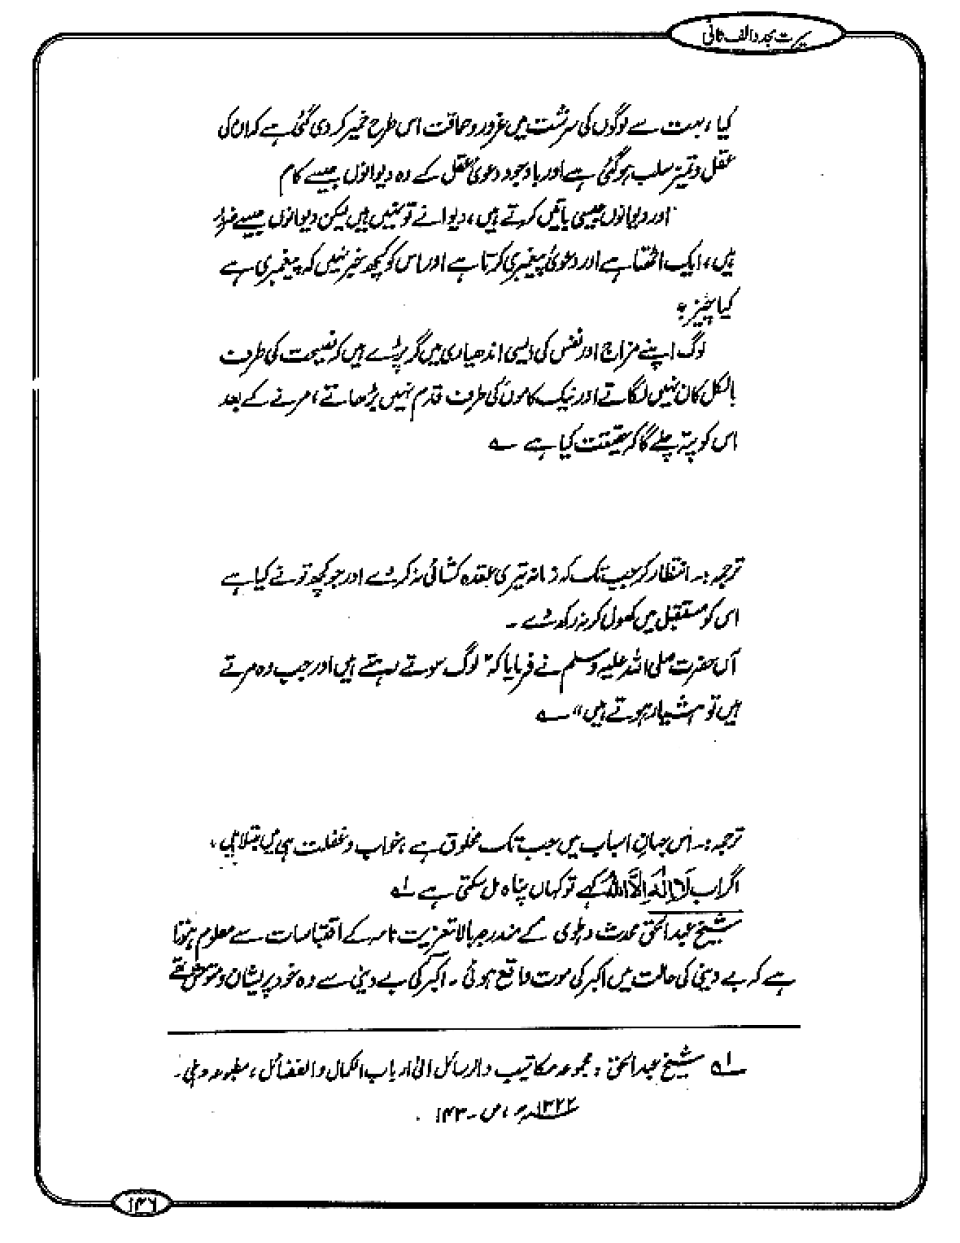 سیرت مجدد الف ثانی
کیا، بہت سے لوگوں کی سرشت میں غرور و حماقت اس طرح خمیر کر دی گئی ہے کہ ان کی
عقل و تمیز سلب ہو گئی ہے اور باوجود دعویٰ عقل کے وہ دیوانوں جیسے کام
اور دیوانوں جیسی باتیں کرتے ہیں، دیوانے تو نہیں ہیں لیکن دیوانوں جیسے ضرور
ہیں، ایک اٹھتا ہے اور دعویٰ پیغمبری کرتا ہے اور اس کو کچھ خبر نہیں کہ پیغمبری ہے
کیا چیز؟
لوگ اپنے مزاج اور نفس کی ایسی اندھیاری میں گر پڑے ہیں کہ نصیحت کی طرف
بالکل کان نہیں لگاتے اور نیک کاموں کی طرف قدم نہیں بڑھاتے، مرنے کے بعد
اس کو پتہ چلے گا کہ حقیقت کیا ہے ؎
ترجمہ:۔ انتظار کر جب تک کہ زمانہ تیری عقدہ کشائی نہ کر دے اور جو کچھ تو نے کیا ہے
اس کو مستقبل میں کھول کر نہ رکھ دے۔
آں حضرت صلی اللہ علیہ وسلم نے فرمایا کہ "لوگ سوتے رہتے ہیں اور جب وہ مرتے
ہیں تو ہشیار ہوتے ہیں" ؎
ترجمہ:۔ اس جہانِ اسباب میں جب تک مخلوق ہے، خواب و غفلت ہی میں مبتلا ہے،
اگر اب لَا اِلٰہَ اِلَّا اللہُ کہے تو کہاں پناہ مل سکتی ہے ۱؎
شیخ عبدالحق محدث دہلوی کے مندرجہ بالا تعزیت نامہ کے اقتباسات سے معلوم ہوتا
ہے کہ بے دینی کی حالت میں اکبر کی موت واقع ہوئی۔ اکبر کی بے دینی سے وہ خود پریشان و متوحش تھے
۱؎ شیخ عبدالحق: مجموعہ مکاتیب والرسائل الیٰ ارباب الکمال والفضائل، مطبوعہ دہلی۔
۱۳۳۲ھ، ص۔ ۱۴۳۔
۱۴۶